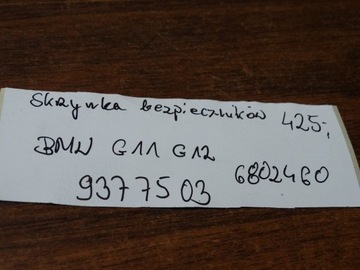 Skrzynka bezpieczników 425,-
BMW G11 G12
9377503 6802460